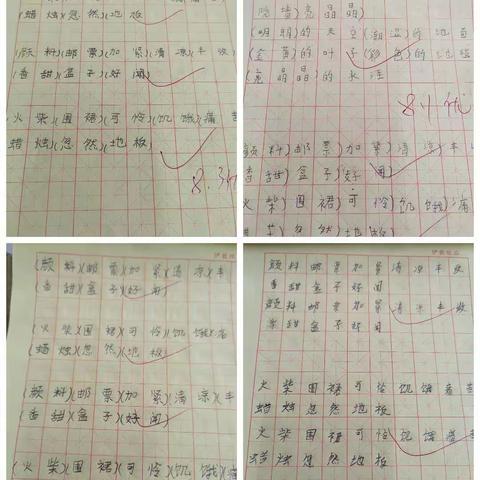 (蜡烛)(忽然)(地板)
(颜料)(邮票)(加紧)(清凉)(丰收)
(香甜)(盒子)(好闻)
火柴)(围裙)(可怜)(饥饿)(痛苦
蜡烛)(忽然)(地板)
8.3优
院墙)亮晶晶)
(明朗)的天空(潮湿)的地面
(金黄)的叶子(彩色)的地毯
(亮晶晶)的水洼
8.11优
颜料)邮票)加紧)清凉)丰收
香甜)盒子)好闻)
火柴)围裙)可怜)饥饿)痛
忽然)地板)
(颜料)(邮票)(加紧)(清凉)(丰
(香甜)(盒子)(好闻)
(火柴)(围裙)(可怜)(饥饿)(痛
(蜡烛)(忽然)(地板)
(颜料)(邮票)(加紧)(清凉)(丰
(香甜)(盒子)(好闻)
(火柴)(围裙)(可怜)(饥饿)(痛
颜料邮票加紧清凉丰收
香甜盒子好闻
颜料邮票加紧清凉丰收
香甜盒子好闻
火柴围裙可怜饥饿
蜡烛忽然地板
火柴围裙可怜饥饿
蜡烛忽然地板